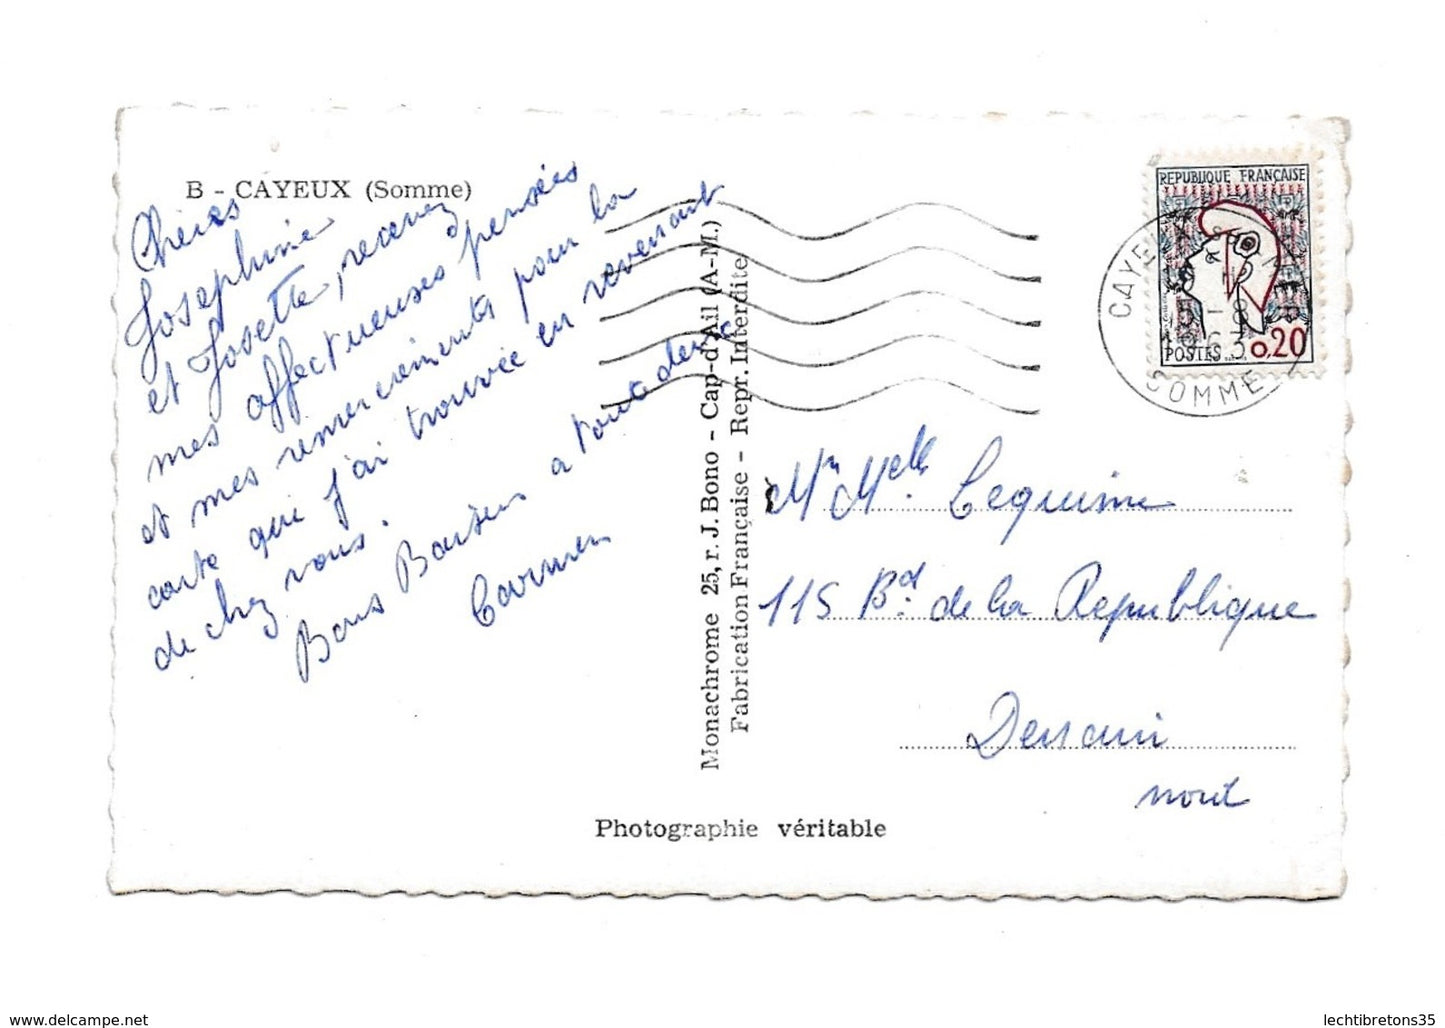 B - CAYEUX (Somme)
Chères
Josephine
et Josette, recevez
mes affectueuses pensées
et mes remerciements pour la
carte que j'ai trouvée en revenant
de chez vous.
Bons Baisers a toute deux
Carmen
Monachrome 25, r. J. Bono - Cap-d'Ail (A-M.)
Fabrication Française - Repr. Interdite
REPUBLIQUE FRANÇAISE
POSTES
0,20
CAYEUX
SOMME
Melle Lequime
115 Bd. de la Republique
Denain
nord
Photographie véritable
Delcampe.net
lechtibretons35